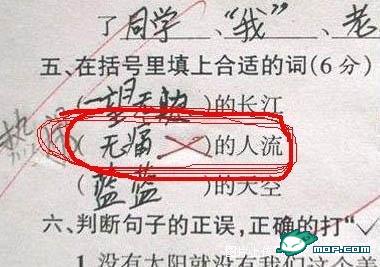 了同学、“我”、老
五、在括号里填上合适的词(6分)
(一望无边)的长江
热闹(无痛)的人流
(蓝蓝)的天空
六、判断句子的正误,正确的打“√
1.没有太阳就没有我们这个美
mop.com